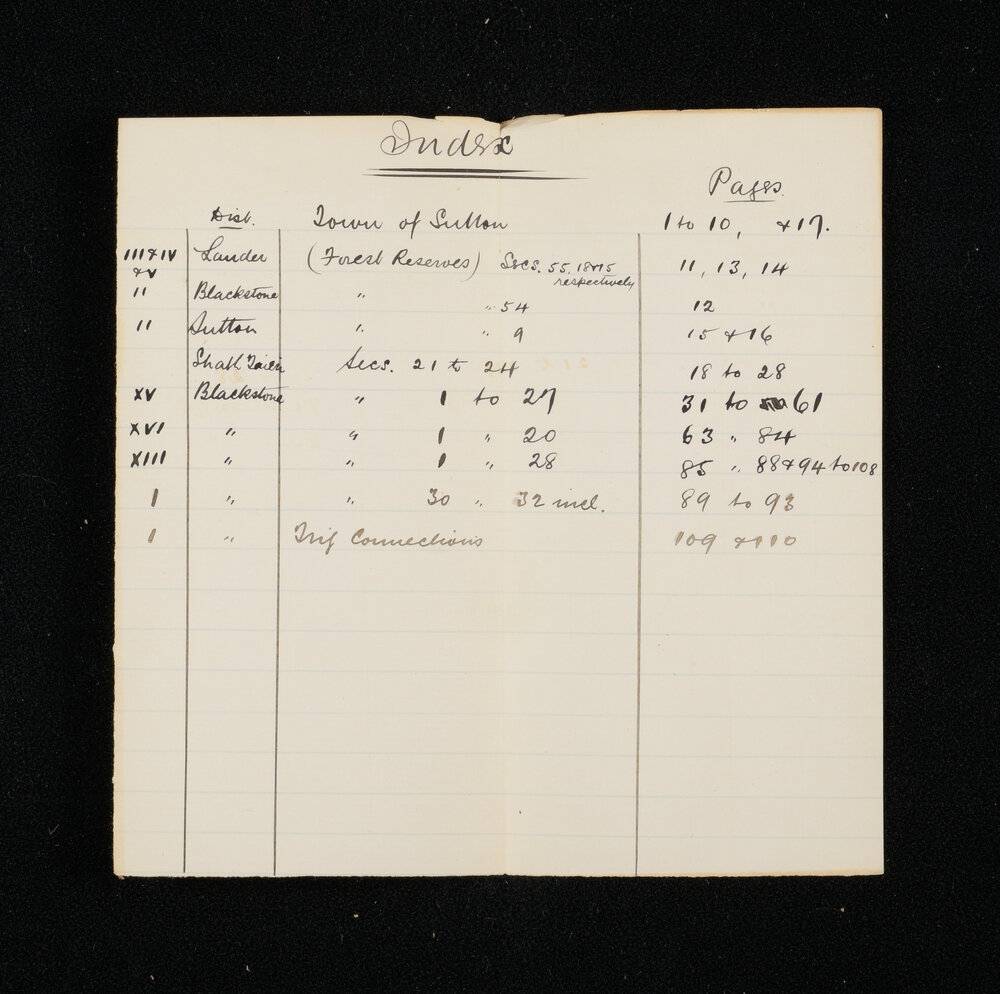 Index
Pages.
Dist. Town of Sutton 1 to 10, & 17.
III & IV Lauder (Forest Reserves) Secs. 55, 18 & 15 11, 13, 14
& V respectively
II Blackstone " " 54 12
II Sutton " " 9 15 & 16
Secs. 21 to 24 18 to 28
XV Blackstone " 1 to 27 31 to 61
XVI " " 1 " 20 63 " 84
XIII " " 1 " 28 85 " 88 & 94 to 108
I " " 30 " 32 incl. 89 to 93
I " Trig Connections 109 & 110